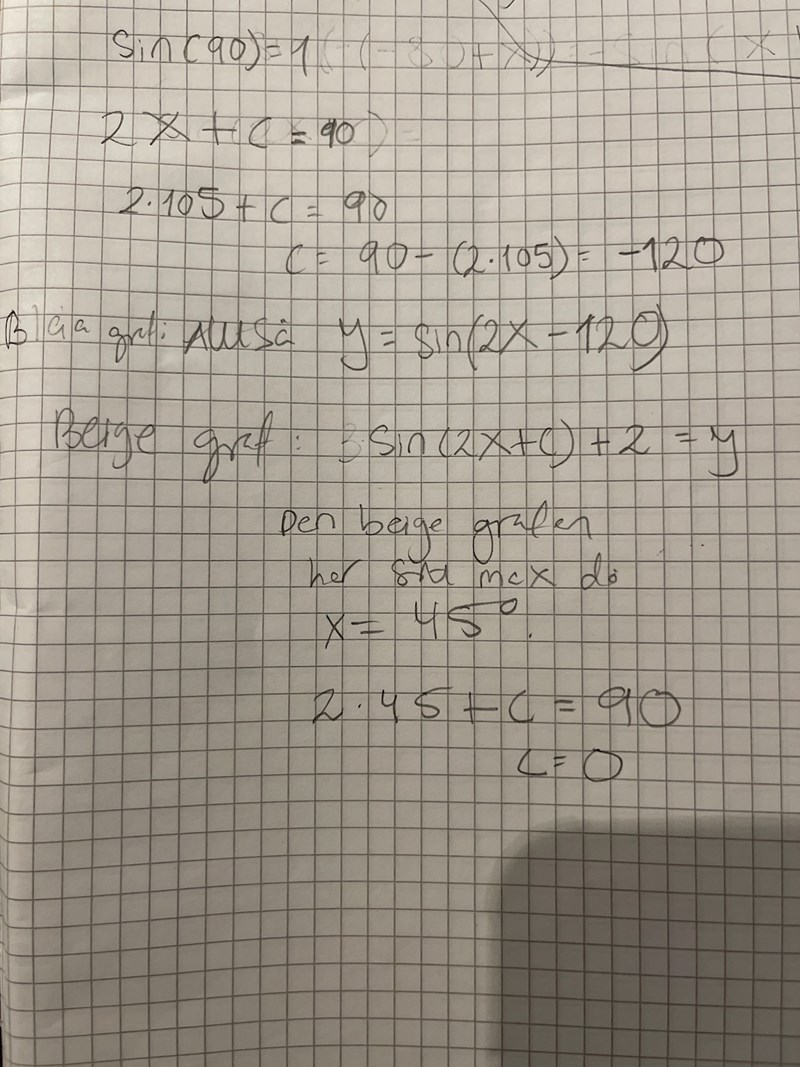 sin(90)=1
2x + c = 90
2·105 + c = 90
c = 90 - (2·105) = -120
Blåa graf: Alltså y = sin(2x - 120)
Beige graf: 3 sin(2x+c) + 2 = y
Den beige grafen
har sitt max då
x = 45°.
2·45 + c = 90
c = 0